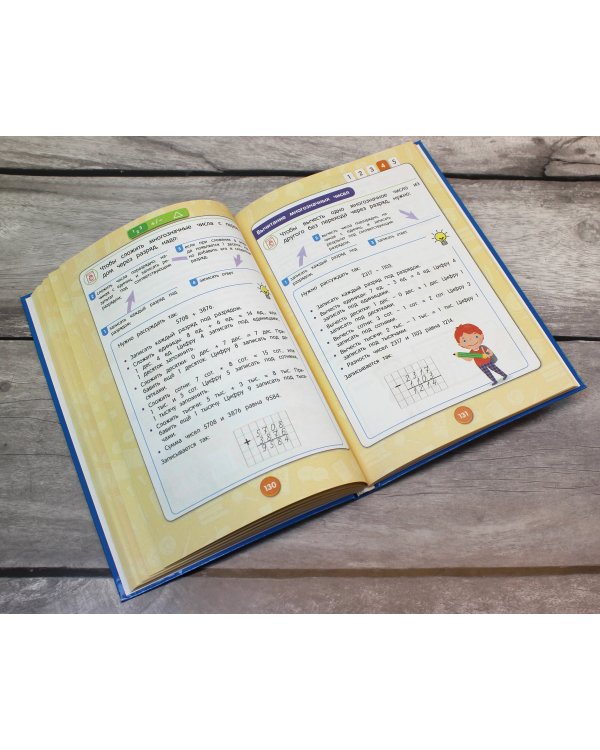 Чтобы сложить многозначные числа с
через разряд, надо:
записать ответ
записать каждый разряд под
разрядом;
Нужно рассуждать так: 5708 + 3876.
• Записать каждый разряд под разрядом.
• Сложить единицы: 8 ед. + 6 ед. = 14 ед. или
1 дес. 4 ед. Цифру 4 записать под единицами,
1 десяток запомнить.
• Сложить десятки: 0 дес. + 7 дес. = 7 дес. При-
бавить ещё 1 десяток. Цифру 8 записать под де-
сятками.
• Сложить сотни: 7 сот. + 8 сот. = 15 сот. или
1 тыс. и 5 сот. Цифру 5 записать под сотнями,
1 тысячу запомнить.
• Сложить тысячи: 5 тыс. + 3 тыс. = 8 тыс. При-
бавить ещё 1 тысячу. Цифру 9 записать под тыся-
чами.
• Сумма чисел 5708 и 3876 равна 9584.
Записывается так:
5708
+ 3876
9584
130
1 2 3 4 5
Вычитание многозначных чисел
Чтобы вычесть одно многозначное число из
другого без перехода через разряд, нужно:
записать ответ
записать каждый разряд под
разрядом;
Нужно рассуждать так: 2317 – 1103.
• Записать каждый разряд под разрядом.
• Вычесть единицы: 7 ед. – 3 ед. = 4 ед. Цифру 4
записать под единицами.
• Вычесть десятки: 1 дес. – 0 дес. = 1 дес. Цифру
1 записать под десятками.
• Вычесть сотни: 3 сот. – 1 сот. = 2 сот. Цифру 2
записать под сотнями.
• Вычесть тысячи: 2 тыс. – 1 тыс. = 1 тыс. Цифру 1
записать под тысячами.
• Разность чисел 2317 и 1103 равна 1214.
Записывается так:
131